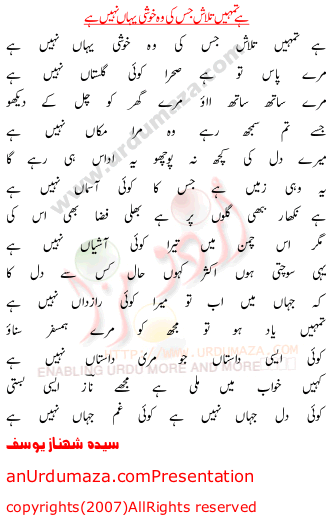 ہے تمہیں تلاش جس کی وہ خوشی یہاں نہیں ہے
ہے تمہیں تلاش جس کی وہ خوشی یہاں نہیں ہے
مرے پاس تو ہے صحرا کوئی گلستاں نہیں ہے
مرے ساتھ ساتھ آؤ مرے گھر کو چل کے دیکھو
جسے تم سمجھ رہے وہ مرا مکاں نہیں ہے
میرے دل کی کچھ نہ پوچھو یہ اداس ہی رہے گا
یہ وہی زمیں ہے جس کا کوئی آسماں نہیں ہے
ہے نکھار بھی گلوں پر ہے بھلی فضا بھی اس کی
مگر اس چمن میں تیرا کوئی آشیاں نہیں ہے
یہی سوچتی ہوں اکثر کہوں حال کس سے دل کا
کہ جہاں میں اب تو میرا کوئی رازداں نہیں ہے
تمہیں یاد ہو تو مجھ کو مرے ہمسفر سناؤ
کوئی ایسی داستاں جو مری داستاں نہیں ہے
کہیں خواب میں ملی ہے مجھے ناز ایسی بستی
کوئی دل جہاں نہیں ہے کوئی غم جہاں نہیں ہے
سیدہ شهناز یوسف
anUrdumaza.comPresentation
copyrights(2007)AllRights reserved
www.urdumaza.com
اردو مزا
HTTP://WWW.URDUMAZA.COM
ENABLING URDU ME AUR MORE